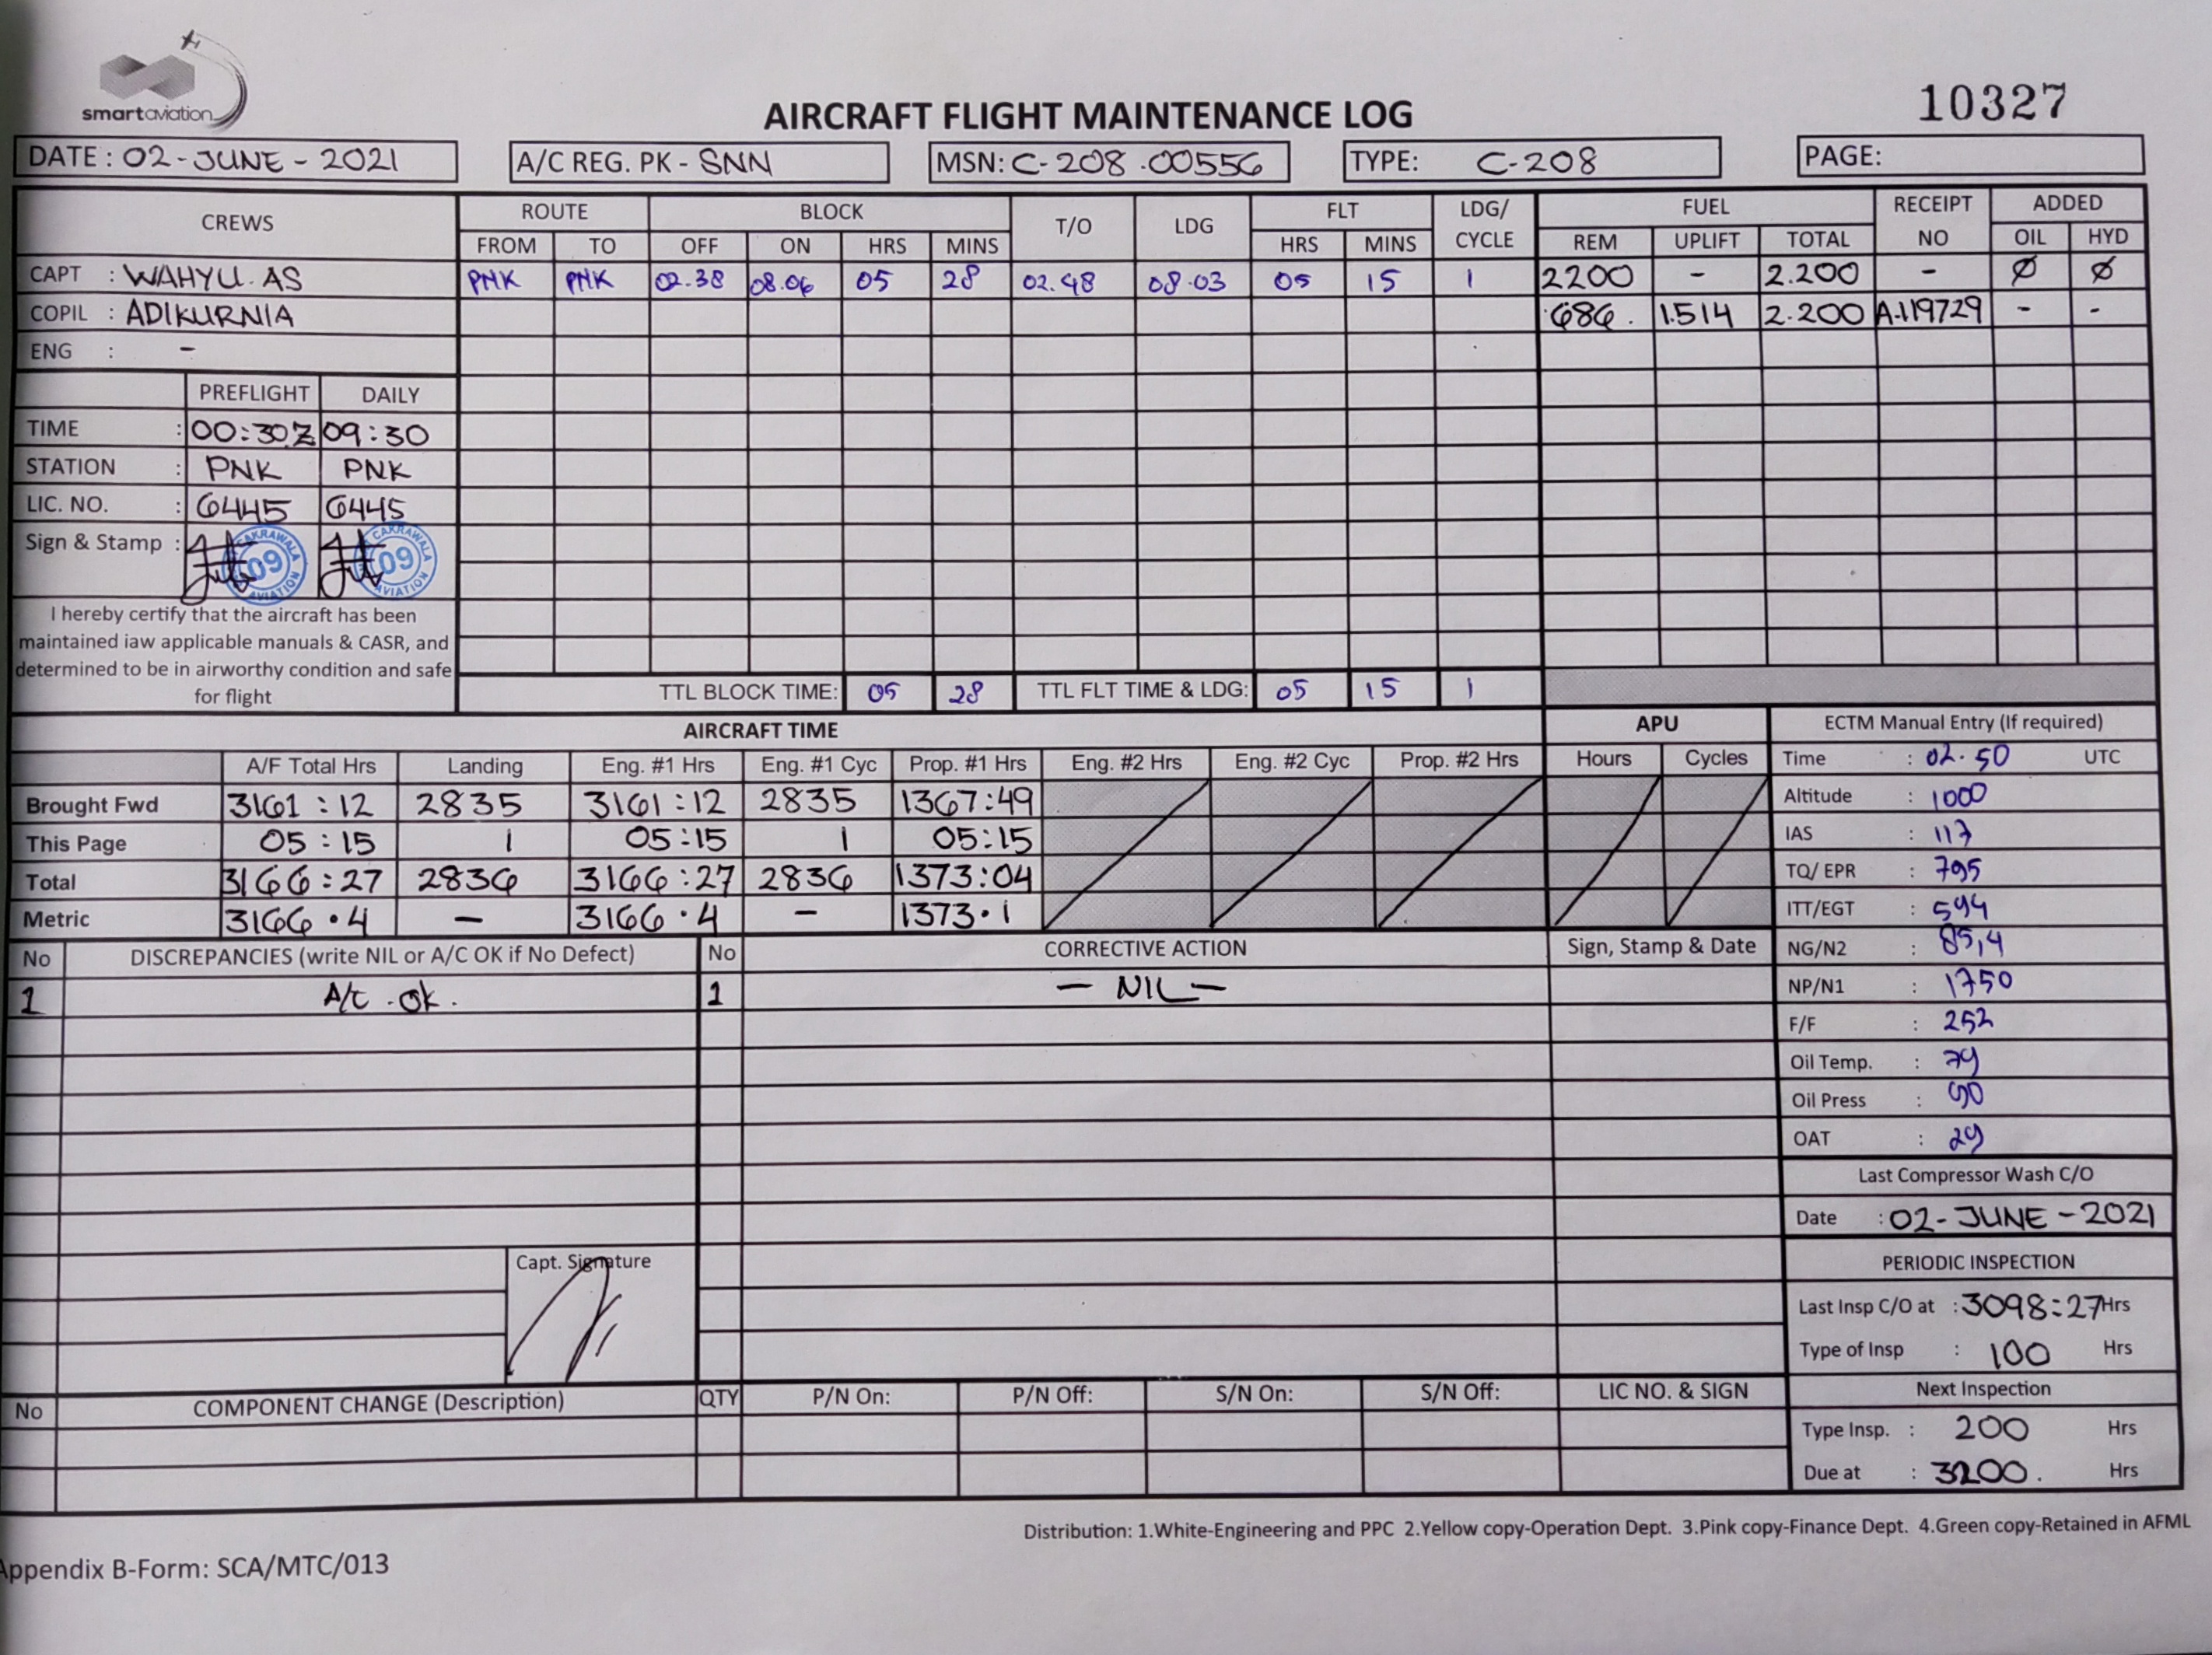 smartaviation
AIRCRAFT FLIGHT MAINTENANCE LOG
10327
DATE : 02-JUNE-2021 A/C REG. PK - SNN MSN: C-208.00556 TYPE: C-208 PAGE:
CREWS ROUTE BLOCK T/O LDG FLT LDG/ CYCLE FUEL RECEIPT NO ADDED
FROM TO OFF ON HRS MINS HRS MINS REM UPLIFT TOTAL OIL HYD
CAPT : WAHYU.AS PNK PNK 02.38 08.06 05 28 02.48 08.03 05 15 1 2200 - 2.200 - Ø Ø
COPIL : ADIKURNIA 686. 1.514 2.200 A-119729 - -
ENG : -
PREFLIGHT DAILY
TIME : 00:30Z 09:30
STATION : PNK PNK
LIC. NO. : 6445 6445
Sign & Stamp : CAKRAWALA 09 AVIATION CAKRAWALA 09 AVIATION
I hereby certify that the aircraft has been
maintained iaw applicable manuals & CASR, and
determined to be in airworthy condition and safe
for flight
TTL BLOCK TIME: 05 28 TTL FLT TIME & LDG: 05 15 1
AIRCRAFT TIME APU
A/F Total Hrs Landing Eng. #1 Hrs Eng. #1 Cyc Prop. #1 Hrs Eng. #2 Hrs Eng. #2 Cyc Prop. #2 Hrs Hours Cycles
Brought Fwd 3161:12 2835 3161:12 2835 1367:49
This Page 05:15 1 05:15 1 05:15
Total 3166:27 2836 3166:27 2836 1373:04
Metric 3166.4 - 3166.4 - 1373.1
ECTM Manual Entry (If required)
Time : 02.50 UTC
Altitude : 1000
IAS : 117
TQ/ EPR : 795
ITT/EGT : 594
NG/N2 : 85,4
NP/N1 : 1750
F/F : 252
Oil Temp. : 79
Oil Press : 90
OAT : 29
Last Compressor Wash C/O
Date : 02-JUNE-2021
PERIODIC INSPECTION
Last Insp C/O at : 3098:27 Hrs
Type of Insp : 100 Hrs
Next Inspection
Type Insp. : 200 Hrs
Due at : 3200. Hrs
No DISCREPANCIES (write NIL or A/C OK if No Defect) No CORRECTIVE ACTION Sign, Stamp & Date
1 A/C.OK. 1 — NIL —
Capt. Signature
No COMPONENT CHANGE (Description) QTY P/N On: P/N Off: S/N On: S/N Off: LIC NO. & SIGN
Distribution: 1.White-Engineering and PPC 2.Yellow copy-Operation Dept. 3.Pink copy-Finance Dept. 4.Green copy-Retained in AFML
Appendix B-Form: SCA/MTC/013